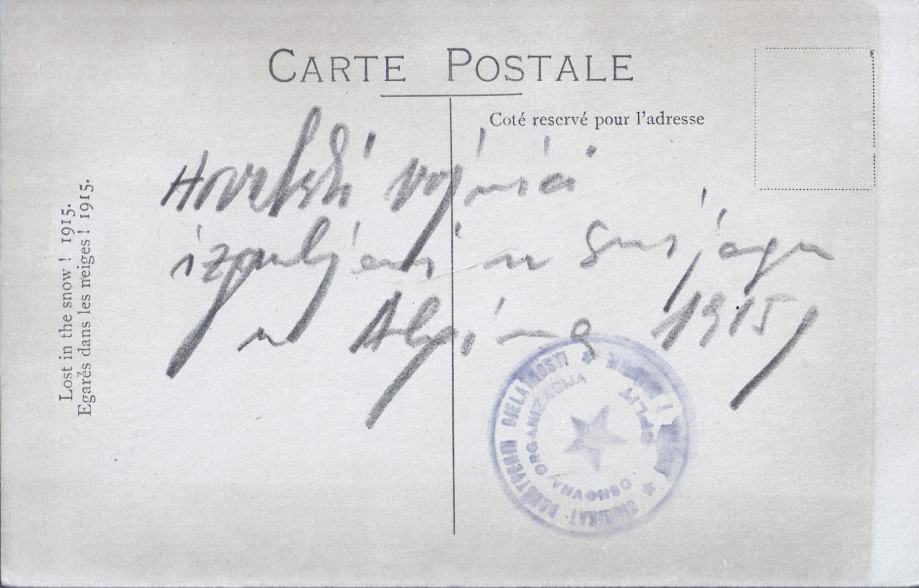 CARTE POSTALE
Coté reservé pour l'adresse
Lost in the snow ! 1915.
Egarés dans les neiges ! 1915.
Hrvatski vojnici
izgubljeni u snijegu
u Alpima 1915
SINDIKAT DJELATNOSTI
OSNOVNA ORGANIZACIJA
SPLIT